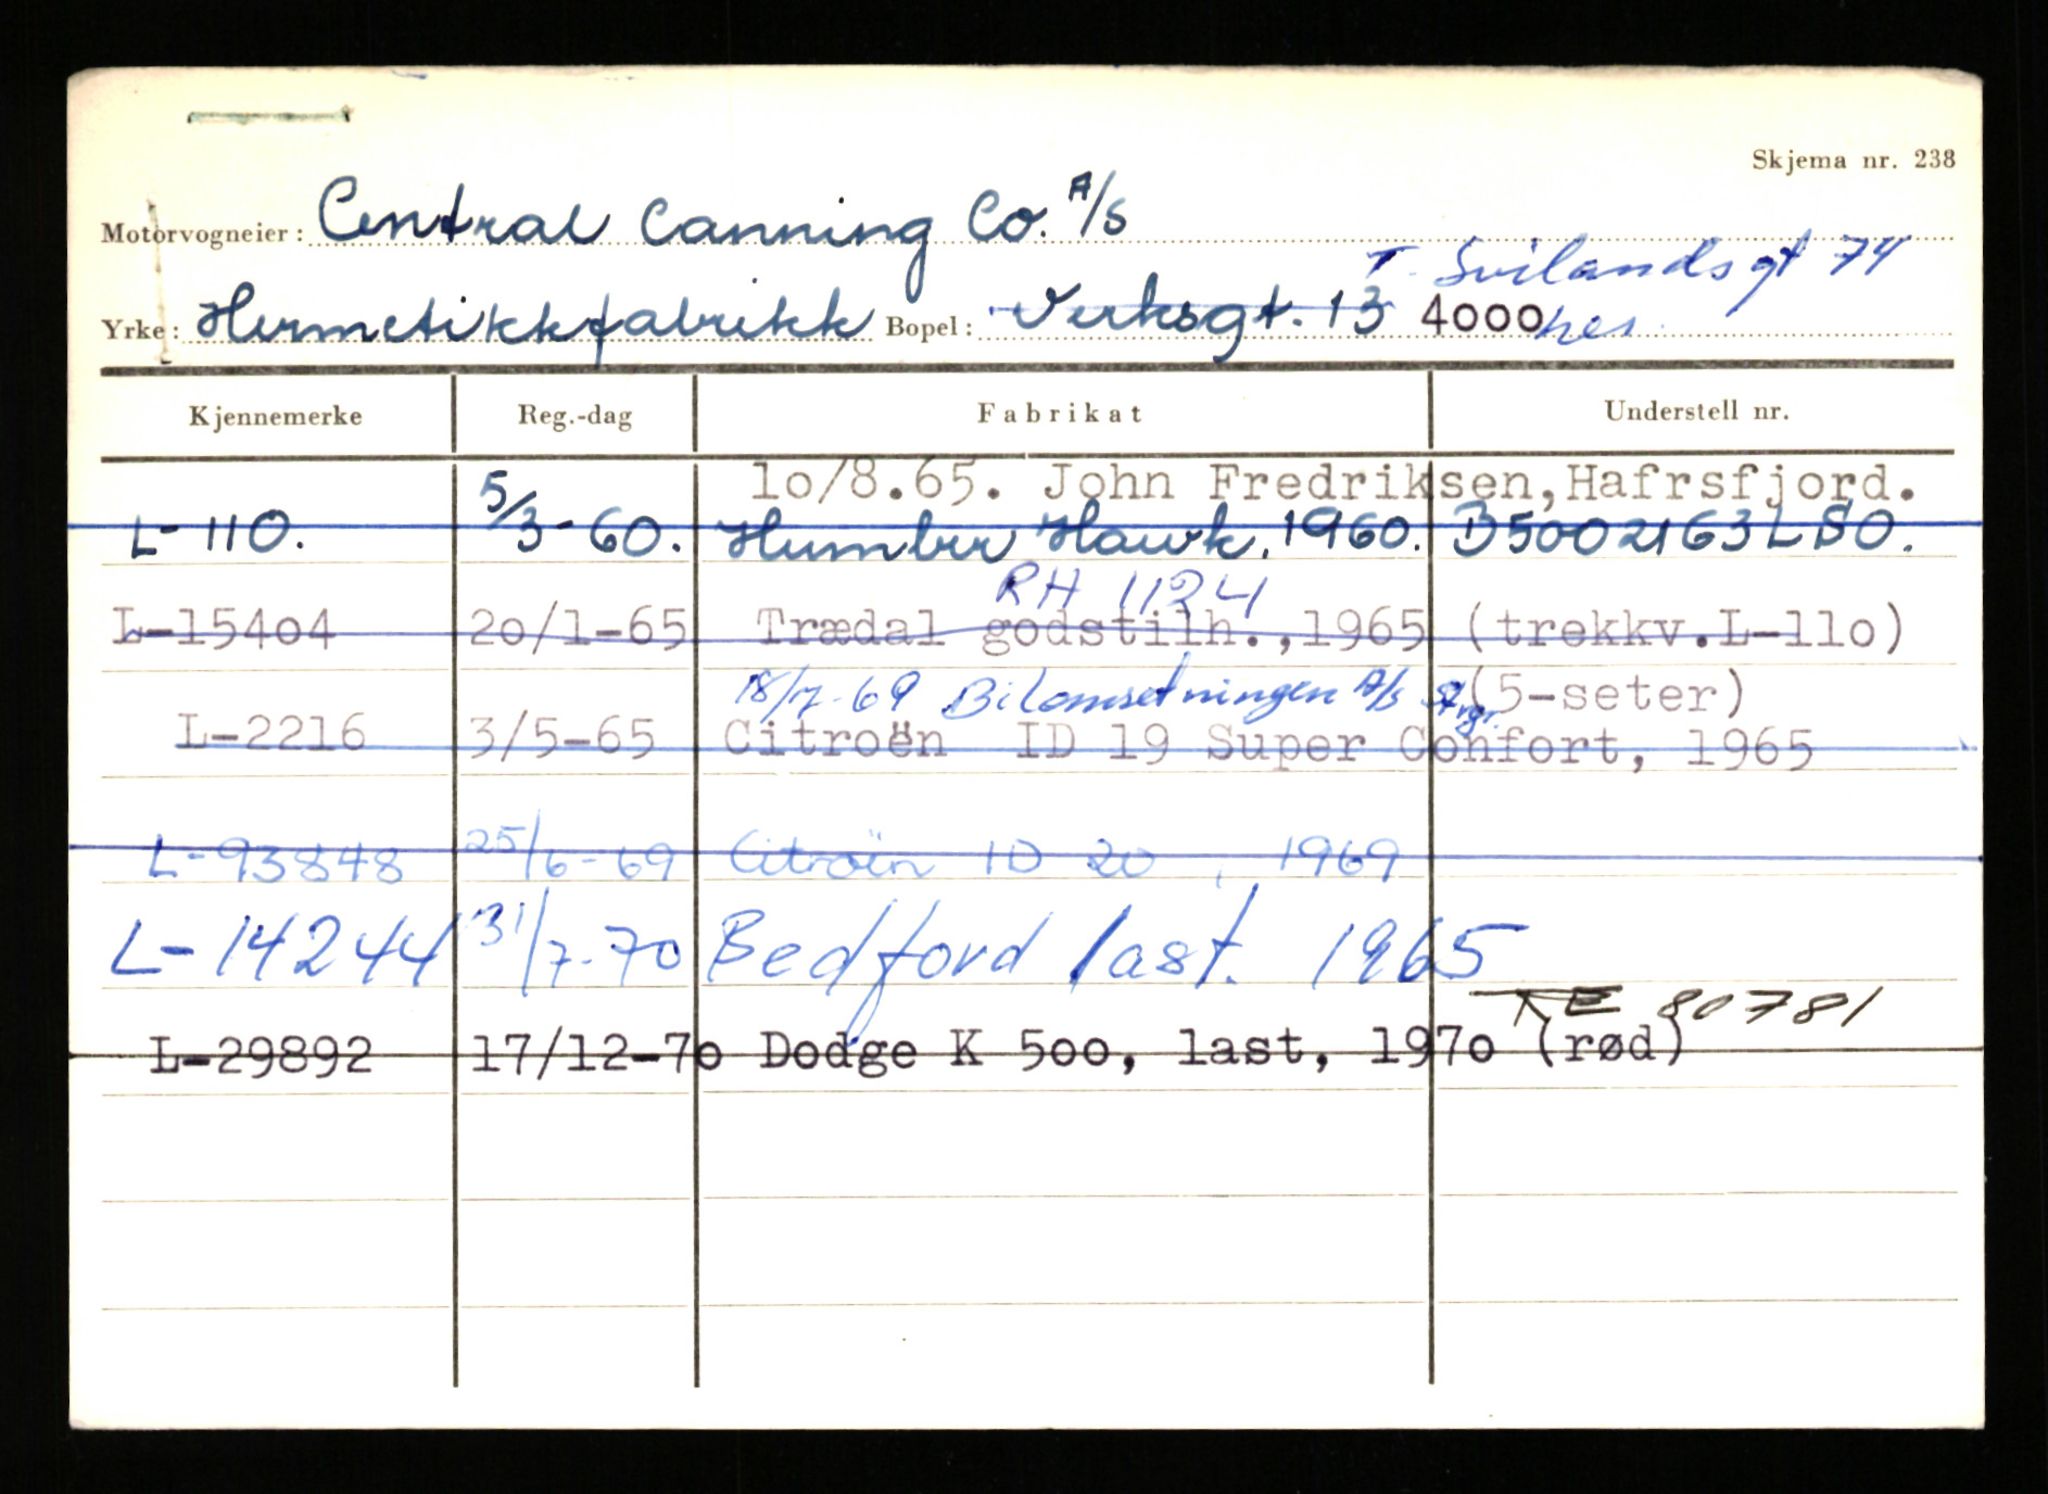 Skjema nr. 238
Motorvogneier: Central Canning Co. A/S
T. Svilandsgt 74
Yrke: Hermetikkfabrikk Bopel: Verksgt. 13 4000 her
Kjennemerke Reg.-dag Fabrikat Understell nr.
lo/8.65. John Fredriksen, Hafrsfjord.
L-110. 5/3-60. Humber Hawk, 1960. B5002163LSO.
RH 1124
L-154o4 2o/1-65 Trædal godstilh., 1965 (trekkv.L-llo)
18/7-69 Bilomsetningen A/S (5-seter)
L-2216 3/5-65 Citroën ID 19 Super Confort, 1965
L-93848 25/6-69 Citroën ID 20, 1969
L-14244 31/7-70 Bedford last. 1965
KE 80781
L-29892 17/12-7o Dodge K 5oo, last, 197o (rød)